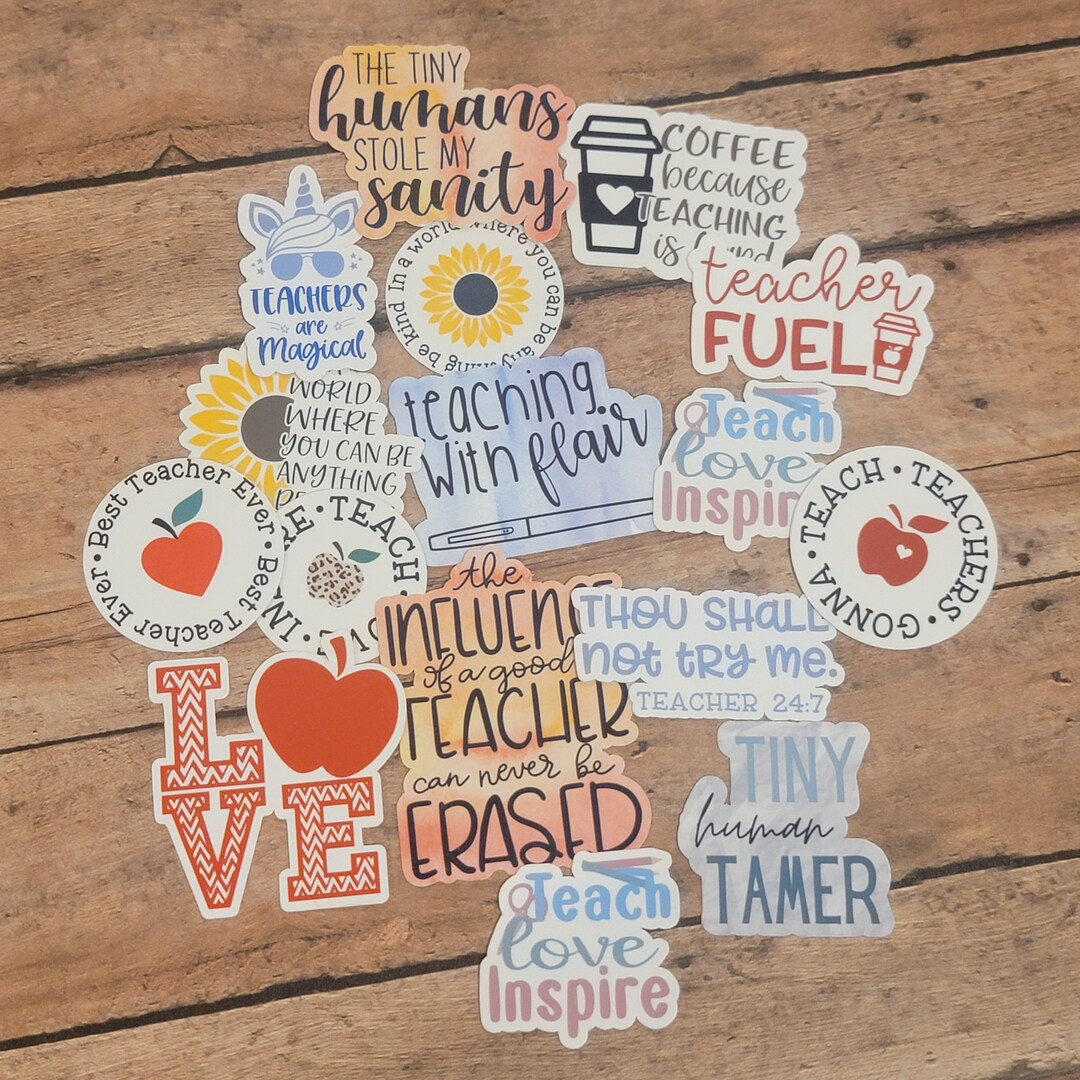 THE TINY
humans
STOLE MY
sanity
COFFEE
because
TEACHING
is
TEACHERS
are
Magical
in a world where you can be anything be kind
teacher
FUEL
WORLD
WHERE
YOU CAN BE
ANYTHING
teaching
with flair
Teach
love
Inspire
Best Teacher Ever • Best Teacher Ever •
TEACH •
IN
TEACH • TEACHERS • GONNA •
the
INFLUENCE
of a good
TEACHER
can never be
ERASED
THOU SHALL
not try me.
TEACHER 24:7
LOVE
TINY
human
TAMER
Teach
love
Inspire